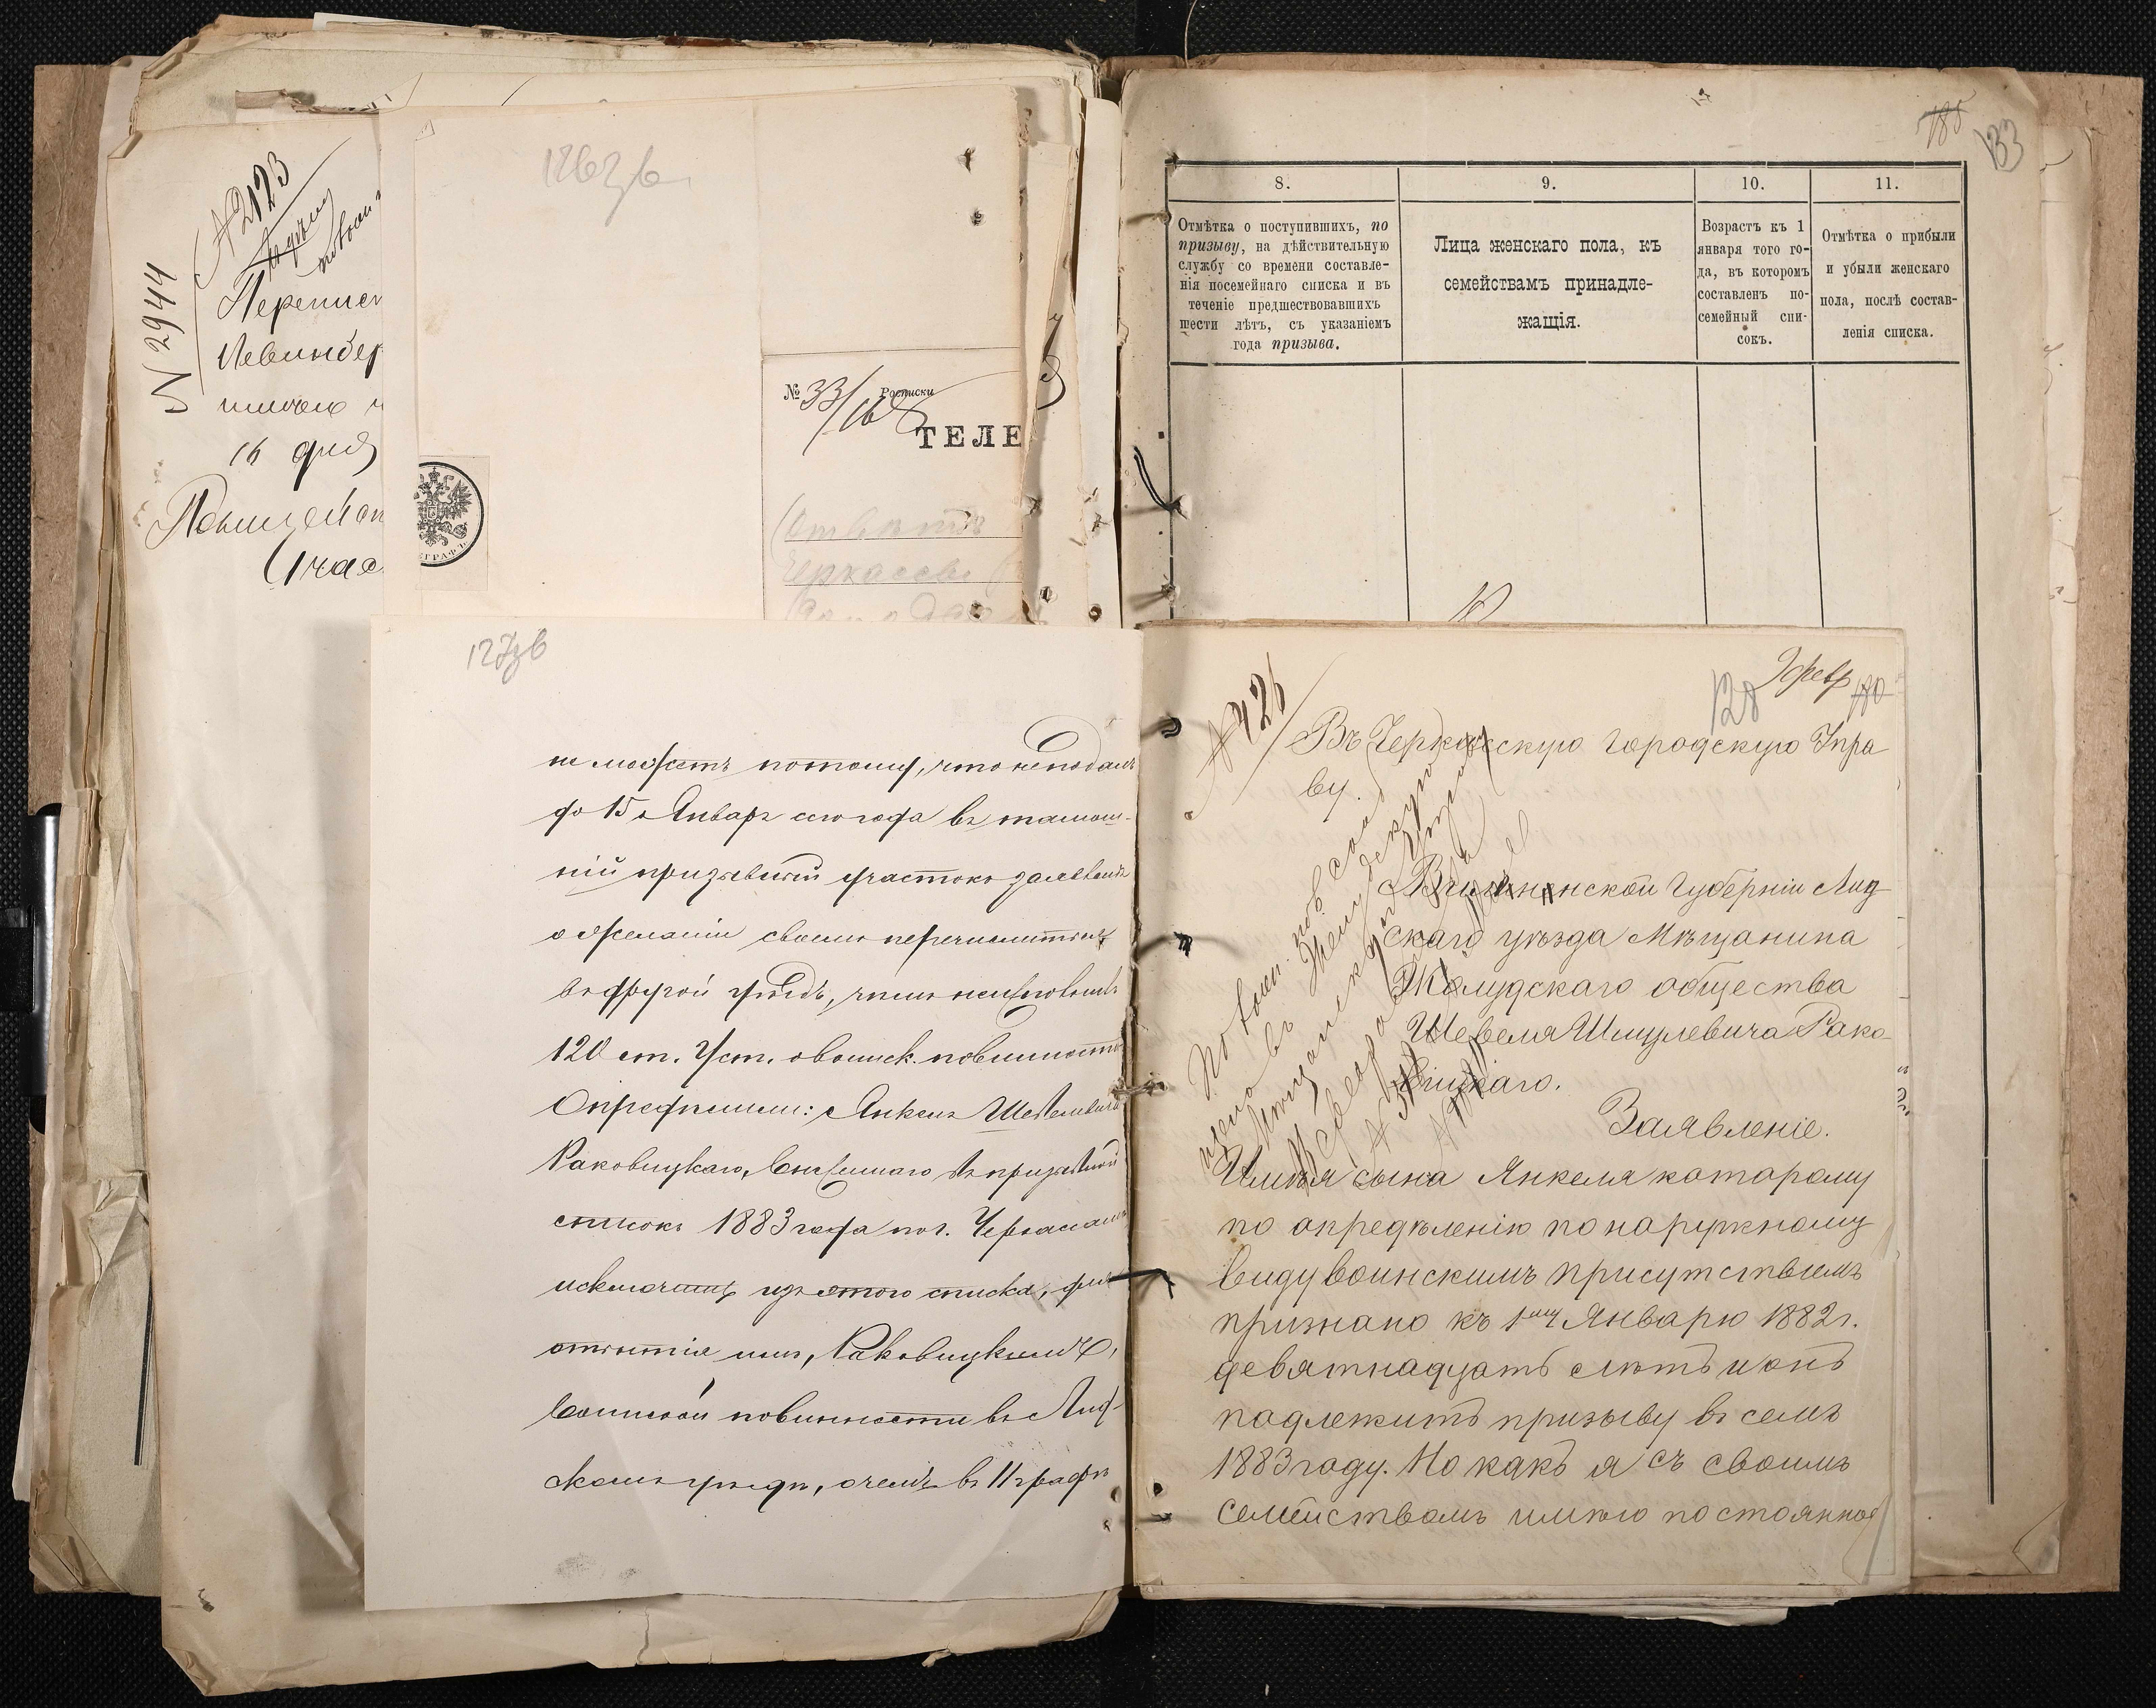 N 2944
№ 2123
Перепис
Левинбер
16 дня
1263в.
№ 33/16 Росписки
ТЕЛЕ
Отвѣтъ
Черкассы
ГРАФЪ
185
133
8.
9.
10.
11.
Отмѣтка о поступившихъ, по
призыву, на дѣйствительную
службу со времени составле-
нія посемейнаго списка и въ
теченіе предшествовавшихъ
шести лѣтъ, съ указаніемъ
года призыва.
Лица женскаго пола, къ
семействамъ принадле-
жащія.
Возрастъ къ 1
января того го-
да, въ которомъ
составленъ по-
семейный спи-
сокъ.
Отмѣтка о прибыли
и убыли женскаго
пола, послѣ состав-
ленія списка.
127зв
не можетъ потому, что не подалъ
до 15 Января сего года въ тамош-
ній призывной участокъ заявленія
о желаніи своемъ перечислиться
въ другой уѣздъ,
120 ст. Уст. о воинск. повинности
Опредѣлили: Янкеля Шевелевича
Раковицкаго, внесеннаго въ призывной
списокъ 1883 года по г. Черкасамъ
исключить изъ этого списка, для
отбытія имъ, Раковицкимъ,
воинской повинности въ Лид-
скомъ уѣздѣ, о чемъ въ 11 графѣ
№ 426
128
9 февр
180
Въ Черкасскую Городскую Упра
ву.
Виленской Губерніи Лид
скаго уѣзда Мѣщанина
Жолудскаго общества
Шевеля Шмулевича Рако-
вицкаго.
Заявленіе.
Имѣя сына Янкеля катораму
по опредѣленію по наружному
виду воинскимъ присутствіемъ
признано къ 1му Январю 1882 г.
девятнадцать лѣтъ и онъ
подлежитъ призыву въ семъ
1883 году. Но какъ я съ своимъ
семействомъ имѣю постоянное